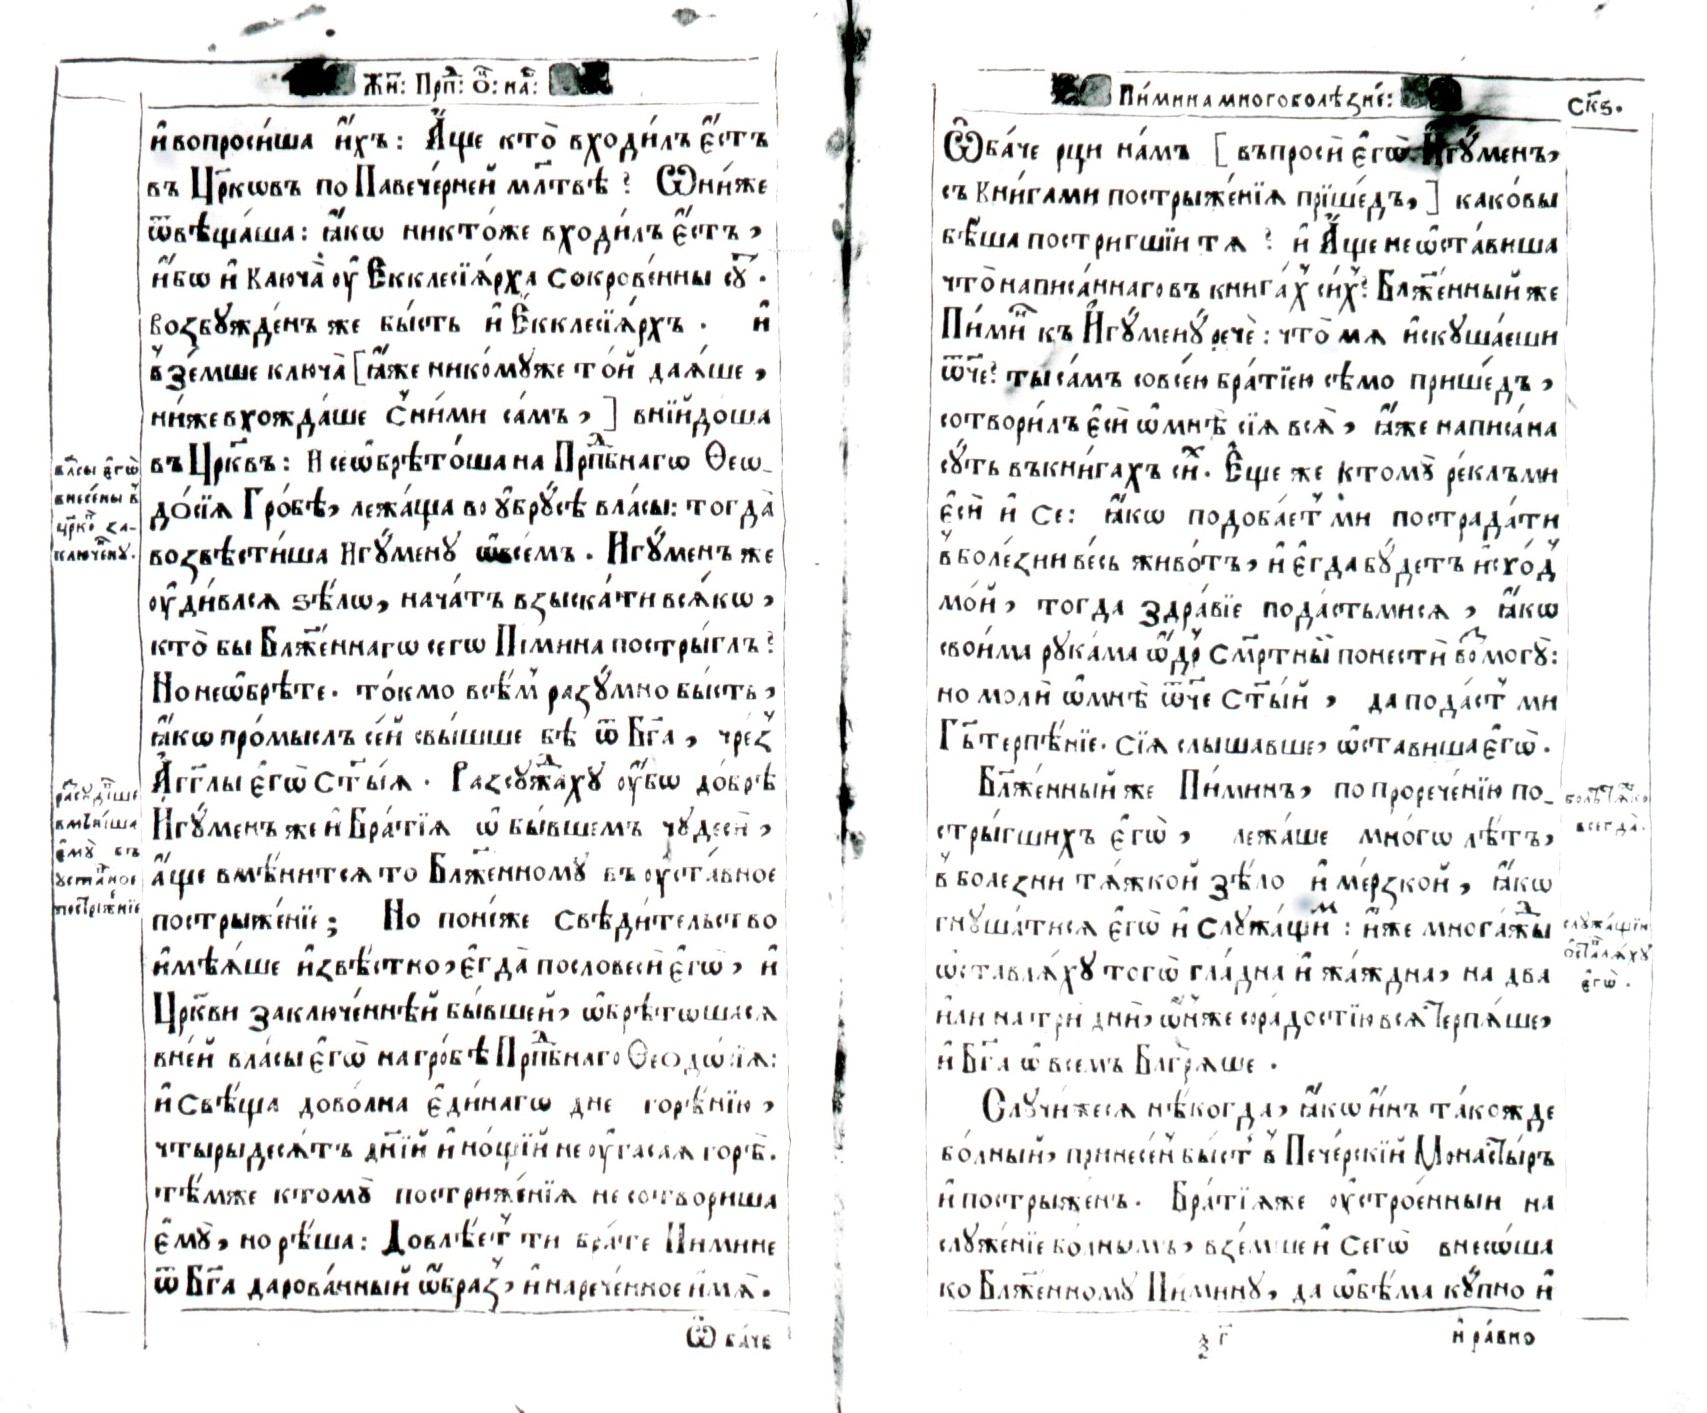 Жи҃: Прⷣп: Ѻ҃: на́ш:
и҆ вопроси́ша и҆́хъ: А҆́ще кто̀ входи́лъ є҆́стъ
въ Цр҃ковъ по Павече́рней мл҃твѣ? Ѡ҆ни́же
ѿвѣща́ша: ꙗ҆́кѡ никто́же входи́лъ є҆́стъ,
и҆́бѡ и҆ Ключа̀ ѹ҆ Є҆кклесїа́рха сокрове́нны сѹ́т.
возбꙋжде́нъ же бы́сть и҆ Є҆кклесїа́рхъ. и҆
в̾зе́мше ключа̀ [ꙗ҆́же нико́мꙋже то́й даѧ́ше,
ни́же вхожда́ше с̾ни́ми са́мъ,] внїйдо́ша
въ Цр҃квъ: И сеѡ҆брѣто́ша на Прⷣпбнагѡ Ѳеѡ_
до́сїѧ Гро́бѣ, лежа́ща во ѹ҆брꙋ́сѣ вла́сы: тогда̀
возвѣсти́ша Игꙋ́менꙋ ѡ҆все́мъ. Игꙋ́менъ же
ѹ҆ди́влсѧ ѕѣ́лѡ, нача́тъ взыска́ти всѧ́кѡ,
кто̀ бы Бл҃же́ннагѡ сегѡ Пімина постры́глъ?
Но неѡ҆брѣ́те. то́кмо всѣ́м̾ разꙋ́мно бы́сть,
ꙗ҆́кѡ про́мыслъ се́й свы́шше бѣ ѿ Бг҃а, чре́з̾
А҆́гг҃лы є҆гѡ̀ ст҃ы́ѧ. Разсꙋжⷣа́хꙋ ѹ҆́бѡ до́брѣ
И҆гꙋ́менъ же и҆ Бра́тїѧ ѡ҆ бы́вшемъ чꙋ́деси̂,
а҆́ще вмѣни́тсѧ то Бл҃же́нномꙋ въ ѹ҆ста́вное
постриже́нїе; Но поне́же свѣди́тельство
и҆мѣѧ́ше и҆звѣ́стно, є҆гда̀ по словеси̂ є҆гѡ̀, и҆
Цр҃кви заключе́ннѣй бы́вшей, ѡ҆брѣтѡшасѧ
вне́й вла́сы є҆гѡ̀ на гро́бѣ Прⷣпбнаго Ѳеодѡ́сїѧ:
и҆ свѣ́ща дово́лна є҆ди́нагѡ дне горѣ́нїю,
чтырыдесѧ́тъ дн҃їй и҆ но́щїй не ѹ҆гасаѧ горѣ̀.
тѣ́мже ктомꙋ̀ постриже́нїѧ не сотвориша
є҆мꙋ̀, но рѣ́ша: Довлѣ́ет̾ ти бра́те Пимине
ѿ Бг҃а дарова́нный ѡ҆́браз̾, и҆ нарече́нное и҆мѧ̀.
Ѡ҆ ба́че
вла́сы є҆гѡ̀
внесе́ны в̾
цр҃ко́в за-
ключе́нꙋ.
расꙋди́вше
вмѣни́ша
є҆мꙋ̀ въ
ѹста́вное
постриже́нїе
Пи́мина многоболѣ́зне́:
Ск҃ѕ.
Ѡ҆ба́че рци на́мъ [въпроси̂ є҆гѡ̀ И҆гꙋ́менъ,
съ кни́гами постриже́нїѧ прїше́дъ,] како́вы
бѣ́ша постригшїи тѧ? и҆ А҆́ще не ѡ҆ста́виша
что̀ написа́ннаго въ книга́х̾ си́х̾? Бл҃же́нный же
Пи́мин къ И҆гꙋ́менꙋ́ рече̂: что̀ мѧ и҆скꙋша́еши
ѿче? ты са́мъ совсе́ю бра́тїею сѣ́мо прише́дъ,
сотвори́лъ є҆сѝ ѡ҆мнѣ̀ сїѧ всѧ̀, ꙗ҆́же написа́на
сꙋ́ть въкни́гахъ си́х. Є҆́ще же ктомꙋ̀ ре́клъми
є҆сѝ и҆ се: ꙗ҆́кѡ подоба́ет̾ ми пострада́ти
в̾ боле́зни ве́сь живо́тъ, и҆ є҆гда бꙋ́детъ и҆схо́д̾
мо́й, тогда здра́вїе пода́стьмисѧ, ꙗ҆́кѡ
свои́ма рꙋка́ма ѡ҆́др̾ см҃ртны́й понести̂ возмогꙋ̀:
но молѝ ѡ҆мнѣ̀ ѿче ст҃ы́й, да пода́ст̾ ми
Гь҃ терпѣ́нїе. Сїѧ слышавше, ѡ҆ставиша є҆гѡ̀.
Бл҃же́нный же Пи́минъ, по прорече́нїю по_
стры́гшихъ є҆гѡ̀, лежа́ше мно́гѡ лѣ́тъ,
в̾ болезни тѧ́жкой зѣ́ло и҆ ме́рзкой, ꙗ҆́кѡ
гнꙋша́тисѧ є҆гѡ̀ и҆ слꙋжа́щим: и҆́же многа́жⷣы
ѡ҆ставлѧ́хꙋ тогѡ̀ гла́дна и҆ жа́ждна, на два
и҆ли на трѝ дни̂, ѡ҆́нже сорадостїю всѧ̀ терпѧ́ше,
и҆ Бг҃а ѡ҆ всемъ Благⷣарѧше.
Слꙋчи́жесѧ нѣ́когда, ꙗ҆́кѡ и҆́нъ та́кожде
бо́лный, принесе́н бы́ст̾ в̾ Пече́рскїй Монасты́ръ
и҆ постриже́нъ. Бра́тїѧже ѹ҆строе́нныи на
слꙋже́нїе бо́лнымъ, взе́мше и҆ сегѡ̀ внесѡ́ша
ко Бл҃же́нномꙋ Пи́минꙋ, да ѡ҆бѣ́ма кꙋ́пно и҆
и҆ ра́вно
всегда̀.
слꙋжа́щїи
ѡставлѧ́хꙋ
є҆гѡ̀.